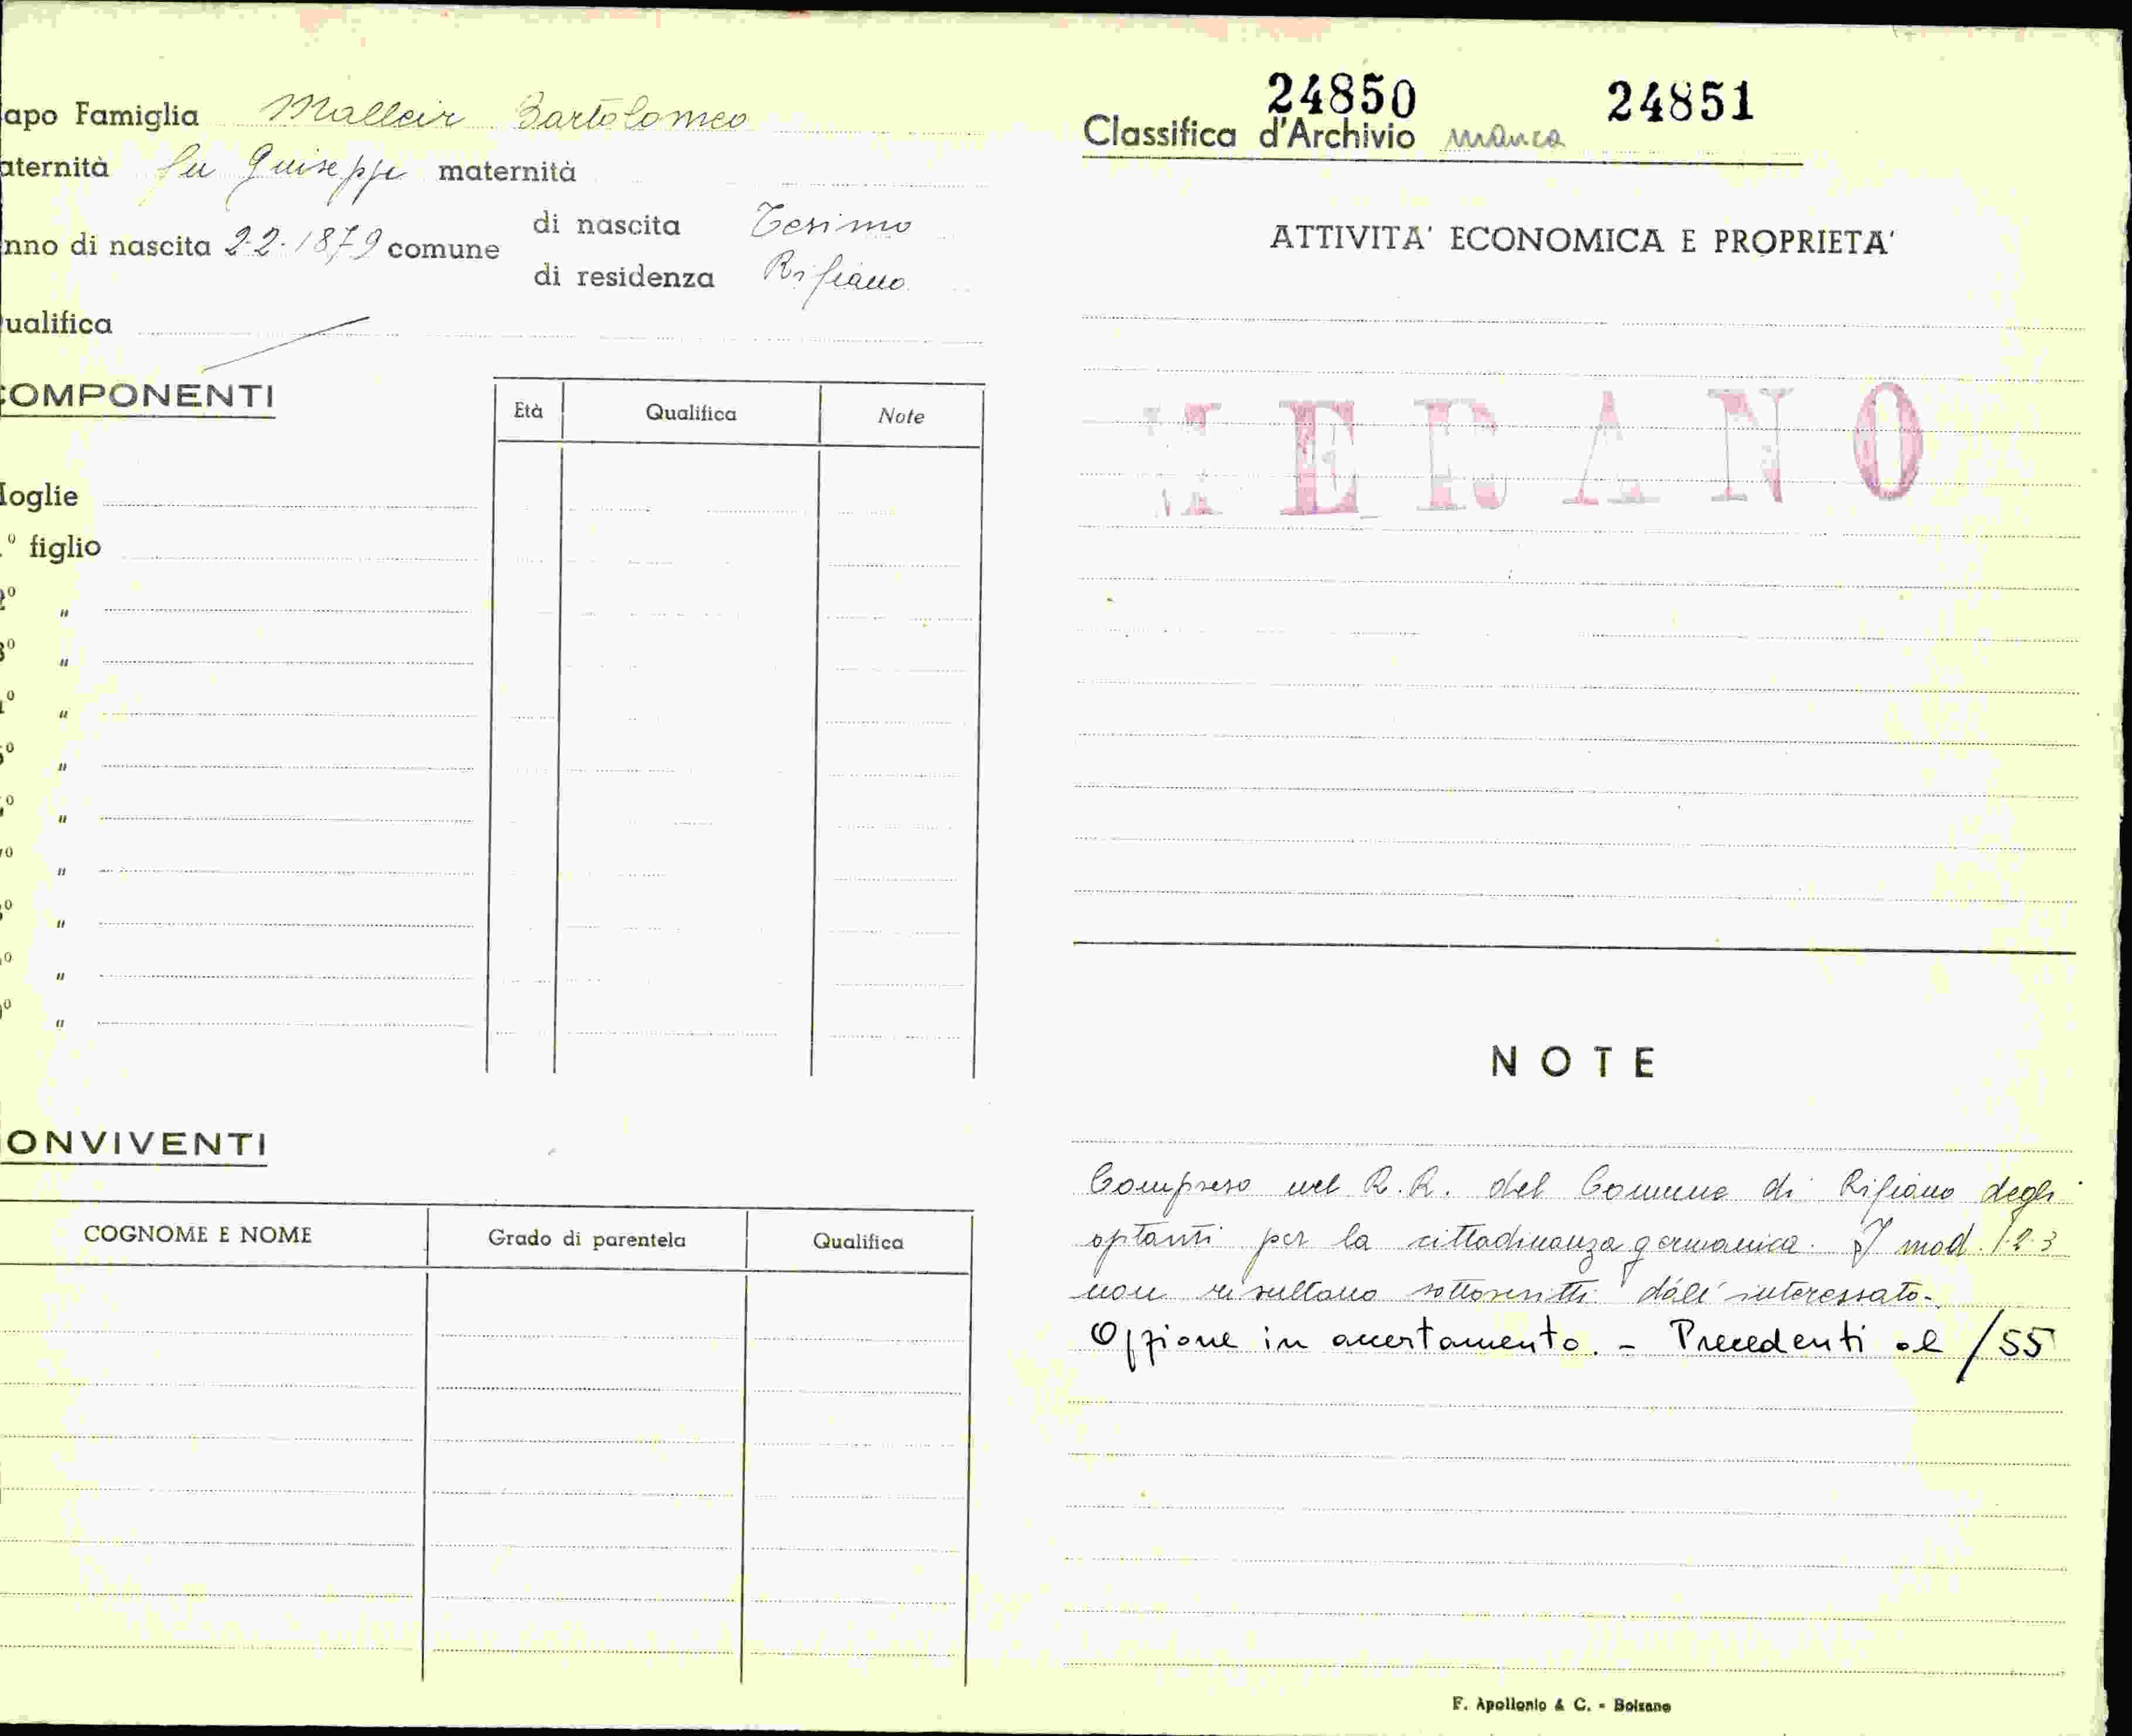 apo Famiglia Malleir Bartolomeo
aternità fu Guiseppe maternità
nno di nascita 2.2.1879 comune di nascita Tesimo
di residenza Rifiano
ualifica
OMPONENTI
Età Qualifica Note
oglie
.º figlio
2º "
3º "
º "
5º "
º "
º "
º "
º "
º "
ONVIVENTI
COGNOME E NOME Grado di parentela Qualifica
24850 24851
Classifica d'Archivio manca
ATTIVITA' ECONOMICA E PROPRIETA'
MERANO
NOTE
Compreso nel R.R. del Comune di Rifiano degli
optanti per la cittadinanza germanica. I mod. 1 2 3
non risultano sottoscritti dall'interessato.
Opzione in accertamento. - Precedenti al /55
F. Apollonio & C. - Bolzano